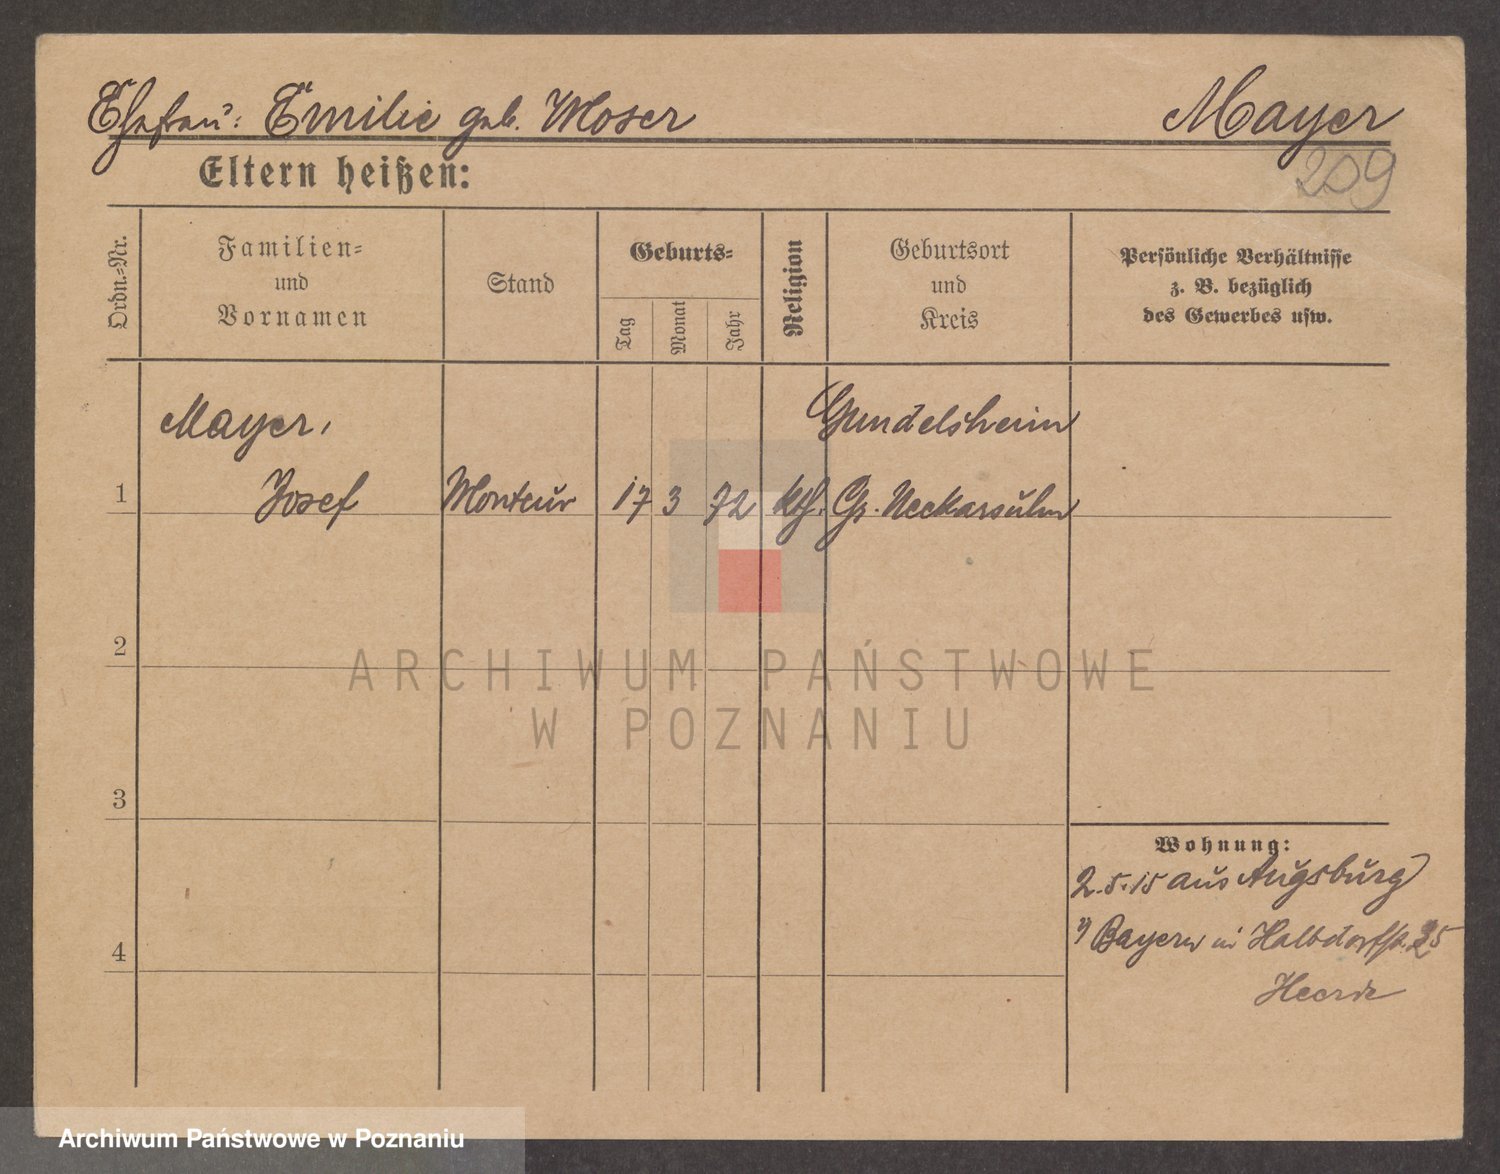 Ehefrau: Emilie geb. Moser Mayer
Eltern heißen: 209
Ordn.=Nr.
Familien=
und
Vornamen
Stand
Geburts=
Tag
Monat
Jahr
Religion
Geburtsort
und
Kreis
Persönliche Verhältnisse
z. B. bezüglich
des Gewerbes usw.
Mayer, Gundelsheim
1 Josef Monteur 17 3 72 kth. Neckarsulm
2
ARCHIWUM PAŃSTWOWE
W POZNANIU
3
Wohnung:
2.5.15 aus Augsburg
Bayern in Halbdorfstr. 25
4
Heerde
Archiwum Państwowe w Poznaniu